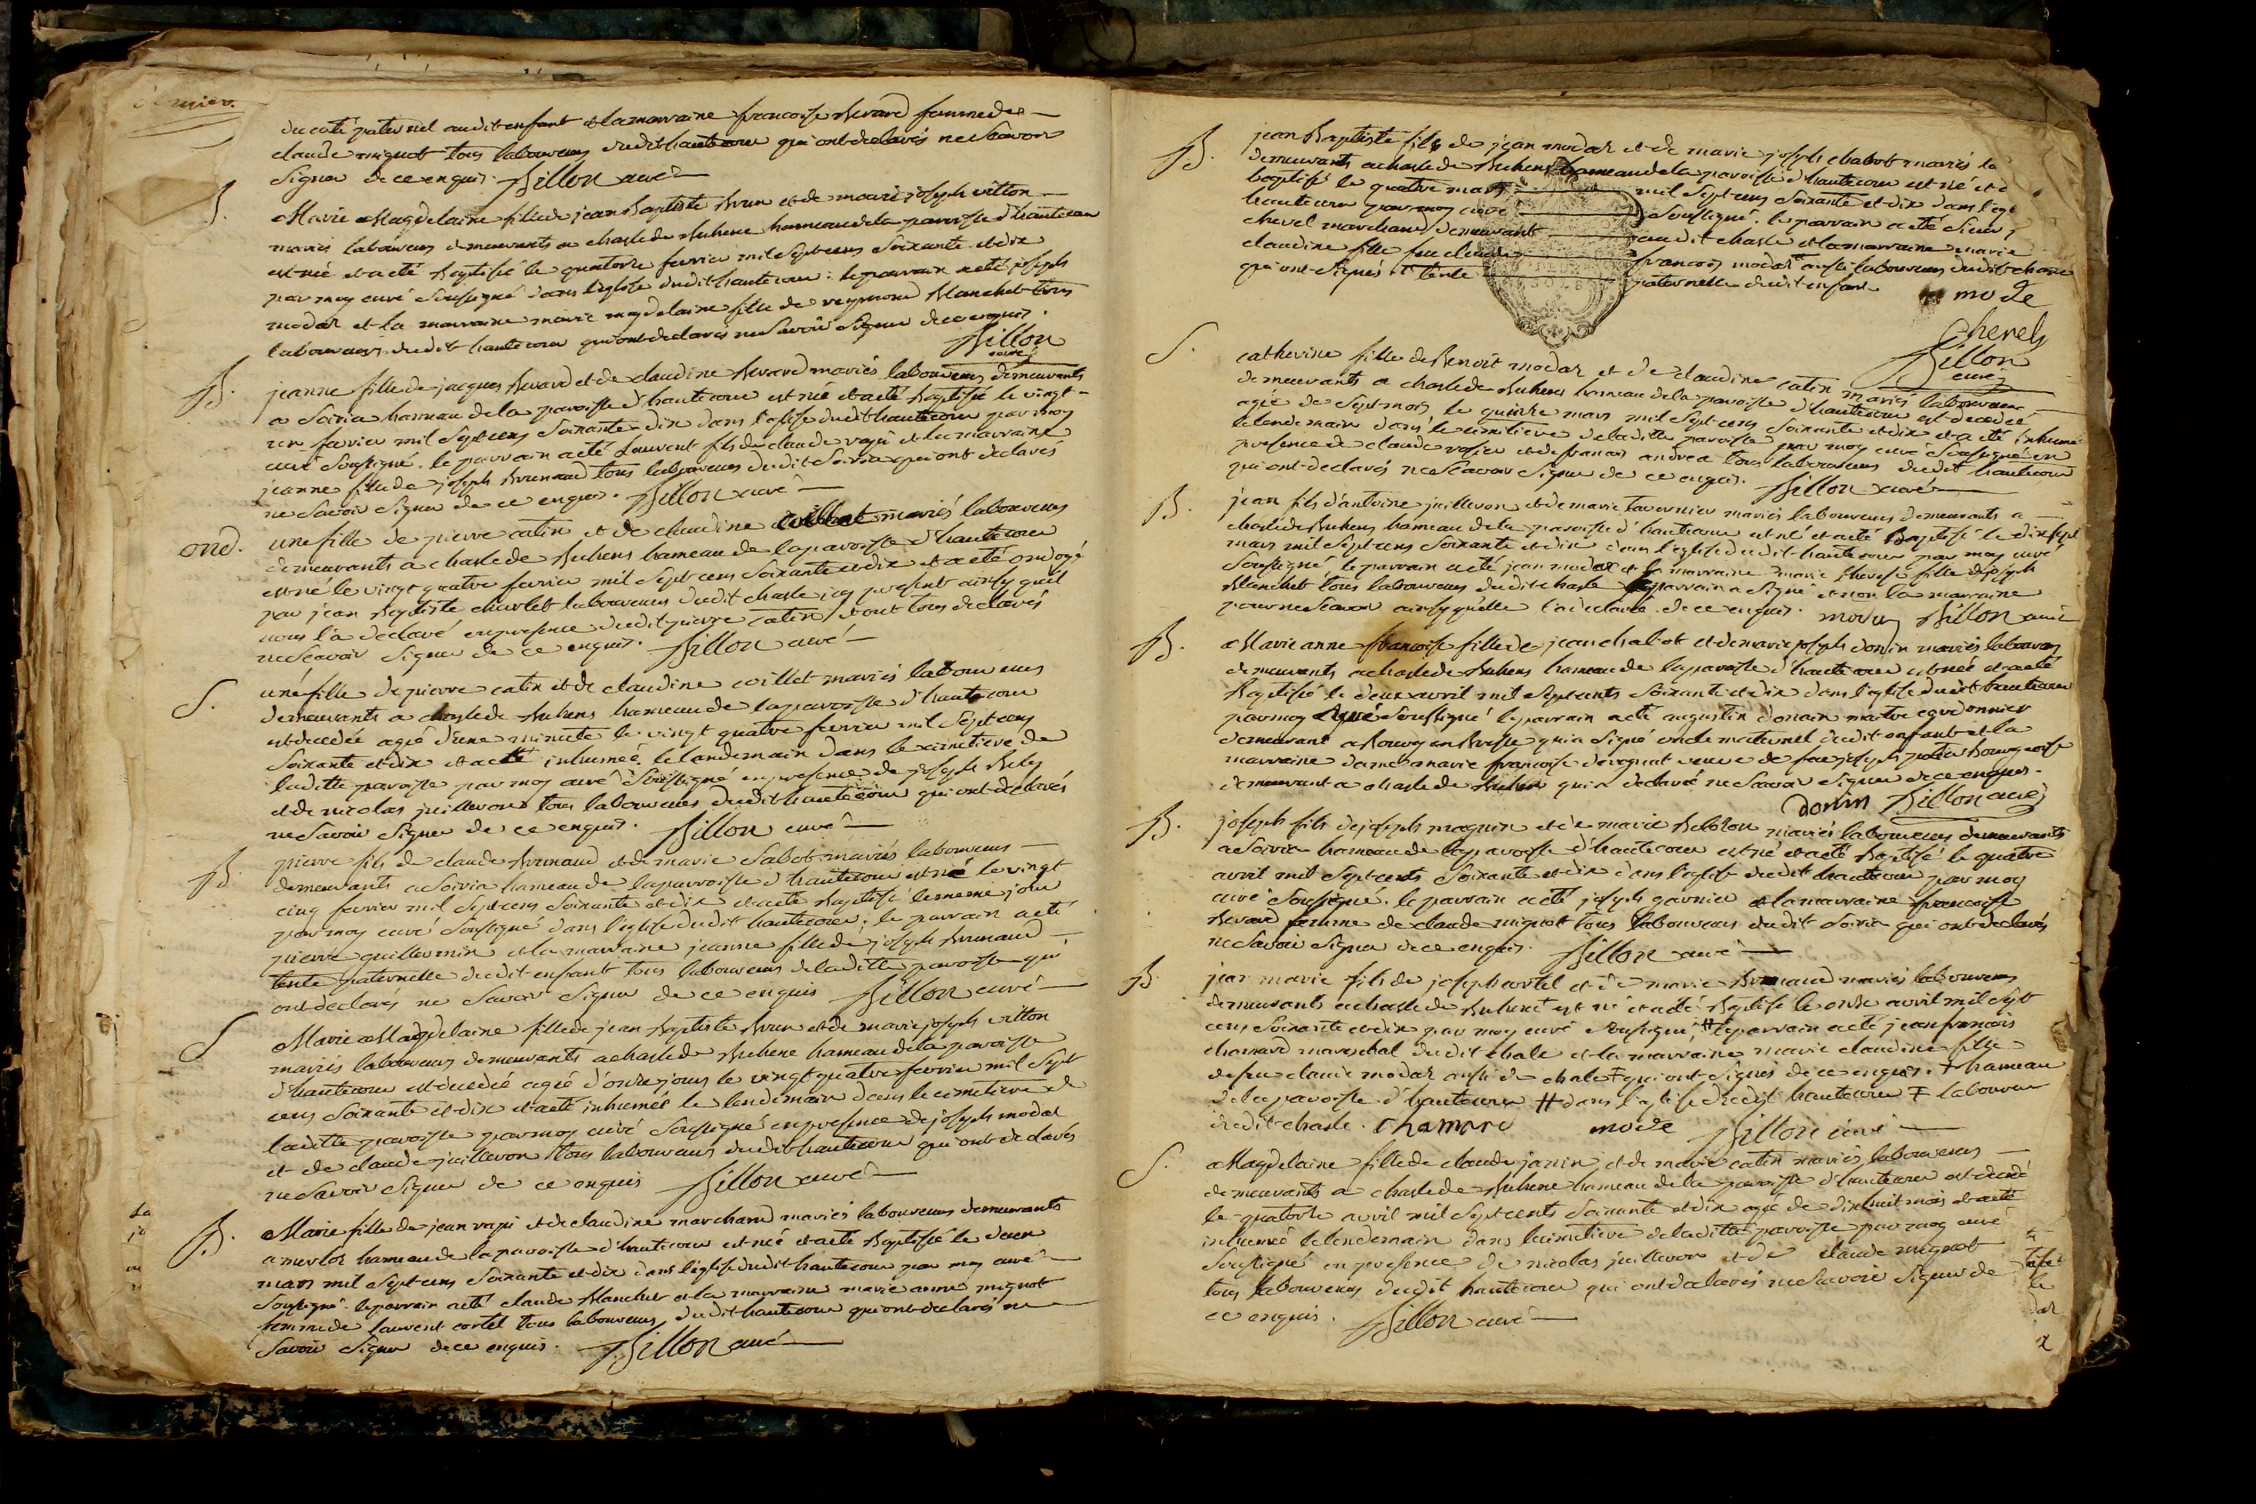 du coté paternel audit enfant et la marraine francoise Berard femme de
claude mignot tous laboureurs dudit hautecour qui ont declarés ne scavoir
signer de ce enquis. Billon curé
B.
Marie Magdelaine fille de jean Baptiste Brun et de marie joseph vitton
mariés laboureurs demeurants a chasle de Buhene hameau de la paroisse d'hautecour
est née et a eté Baptisé le quatorze fevrier mil sept cens soixante et dix
par moy curé soussigné dans l'eglise dudit hautecour: le parrain a eté joseph
modas et la marraine marie magdelaine fille de reymond Blanchet tous
laboureurs dudit hautecour qui ont declarés ne savoir signer de ce enquis.
Billon
curé
B.
jeanne fille de jacques Berard et de claudine Berard mariés laboureurs demeurants
a Soiria hameau de la paroisse d'hautecour est né et a eté Baptisé le vingt
un fevrier mil sept cens soixante et dix dans l'eglise dudit hautecour par moy
curé soussigné. le parrain a eté Laurent fils de claude et la marraine
jeanne fille de joseph Brunaud tous laboureurs dudit Soiria qui ont declarés
ne savoir signer de ce enquis. Billon curé
ond.
une fille de pierre catin et de claudine coillet mariés laboureurs
demeurants a chasle de Buhens hameau de la paroisse d'hautecour
est né le vingt quatre fevrier mil sept cens soixante et dix et a eté ondoyé
par jean Baptiste charlet laboureurs dudit chasle icy present ainsy quel
nous l'a declaré en presence dudit pierre catin et ont tous declarés
ne scavoir signer de ce enquis. Billon curé
S.
une fille de pierre catin et de claudine coillet mariés laboureurs
demeurants a chasle de Buhens hameau de la paroisse d'hautecour
est decedée agié d'une minute le vingt quatre fevrier mil sept cens
soixante et dix et a eté inhumée le landemain dans le cimetiere de
laditte paroisse par moy curé soussigné en presence de joseph Beley
et de nicolas juilleron tous laboureurs dudit hautecour qui ont declarés
ne savoir signer de ce enquis. Billon curé
B
pierre fils de claude Brunaud et de marie Sabot mariés laboureurs
demeurants a Soiria hameau de la parroisse d'hautecour est né le vingt
cinq fevrier mil sept cens soixante et dix et a eté Baptisé le meme jour
par moy curé soussigné dans l'eglise dudit hautecour; le parrain a eté
pierre guillermin et la marraine jeanne fille de joseph Brunaud
tente paternelle dudit enfant tous laboureurs de laditte paroisse qui
ont declarés ne savoir signer de ce enquis Billon curé
S
Marie Magdelaine fille de jean Baptiste Brun et de marie joseph vitton
mariés laboureurs demeurants a chasle de Buhene hameau de la paroisse
d'hautecour est decedée agié d'onze jours le vingt quatre fevrier mil sept
cens soixante et dix et a eté inhumée le lendemain dans le cimetiere de
laditte paroisse par moy curé soussigné en presence de joseph modas
et de claude juilleron tous laboureurs dudit hautecour qui ont declarés
ne savoir signer de ce enquis Billon curé
B.
Marie fille de jean et de claudine marchand mariés laboureurs demeurants
a hameau de la paroisse d'hautecour est née et a eté Baptisé le deux
mars mil sept cens soixante et dix dans l'eglise dudit hautecour par moy curé
soussigné. le parrain a eté claude Blanchet et la marraine marie anne mignot
femme de laurent cortel tous laboureurs dudit hautecour qui ont declarés ne
savoir signer de ce enquis. Billon curé
B.
jean Baptiste fils de jean modas et de marie joseph chabot mariés la
demeurants a chasle de Buhens hameau de la paroisse d'hautecour est né et a
baptisé le quatre mars mil sept cens soixante et dix dans l'egl
hautecour par moy curé soussigné. le parrain a eté sieur
chevel marchand demeurant audit chasle et la marraine marie
claudine fille feu claude francois modas aussi laboureurs dudit chasle
qui ont signés tente paternelle dudit enfant
mode
Cherel
Billon
curé
S.
catherine fille de Benoit modas et de claudine catin mariés laboureurs
demeurants a chasle de Buhens hameau de la paroisse d'hautecour est decedée
agié de sept mois le quinze mars mil sept cens soixante et dix et a eté inhumé
le lendemain dans le cimitiere de laditte paroisse par moy curé soussigné en
presence de claude et de francois andrea tous laboureurs dudit hautecour
qui ont declarés ne scavoir signer de ce enquis. Billon curé
B.
jean fils d'antoine juilleron et de marie tavernier mariés laboureurs demeurants a
chasle de Buhens hameau de la paroisse d'hautecour est né et a eté Baptisé le dix sept
mars mil sept cens soixante et dix dans l'eglise dudit hautecour par moy curé
soussigné le parrain a eté jean modas et la marraine marie therese fille de joseph
Blanchet tous laboureurs dudit chasle le parrain a signé et non la marraine
pour ne scavoir ainsy qu'elle l'a declaré de ce enquis. modas Billon curé
B.
Marie anne francoise fille de jean chabot et de marie joseph donin mariés laboureurs
demeurants a chasle de Buhens hameau de la paroisse d'hautecour est née et a eté
Baptisé le deux avril mil sept cents soixante et dix dans l'eglise dudit hautecour
par moy curé soussigné le parrain a eté augustin donain maitre cordonnier
demeurant a Bourg en Bresse qui a signé oncle maternel dudit enfant et la
marraine dame marie francoise veuve de feu joseph Bourgeoise
demeurant a chasle de Buhen qui a declaré ne scavoir signer de ce enquis.
donin Billon curé
B.
joseph fils de joseph magnin et de marie mariés laboureurs demeurants
a Soiria hameau de la paroisse d'hautecour est né et a eté Baptisé le quatre
avril mil sept cents soixante et dix dans l'eglise dudit hautecour par moy
curé soussigné. le parrain a eté joseph garnier et la marraine francoise
Berard femme de claude mignot tous laboureurs dudit Soiria qui ont declarés
ne savoir signer de ce enquis. Billon curé
B
jean marie fils de joseph cortel et de marie Brunaud mariés laboureurs
demeurants a chasle de Buhene est né et a eté Baptisé le onze avril mil sept
cens soixante et dix par moy curé soussigné # le parrain a eté jean francois
chamard mareschal dudit chale et la marraine marie claudine fille
de feu claude modas aussi de chale ≠ qui ont signés de ce enquis. + hameau
de la paroisse d'hautecour # dans l'eglise dudit hautecour ≠ laboureur
dudit chasle. Chamard mode Billon curé
S.
Magdelaine fille de claude janin et de marie catin mariés laboureurs
demeurants a chasle de Buhene hameau de la paroisse d'hautecour est decedé
le quatorze avril mil sept cents soixante et dix agié de dix huit mois et a eté
inhumée le lendemain dans le cimetiere de laditte paroisse par moy curé
soussigné en presence de nicolas juilleron et de claude mignot
tous laboureurs dudit hautecour qui ont declarés ne savoir signer de
ce enquis. Billon curé